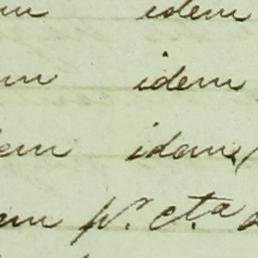 em idem
em idem
em idem
em Nr. Cta